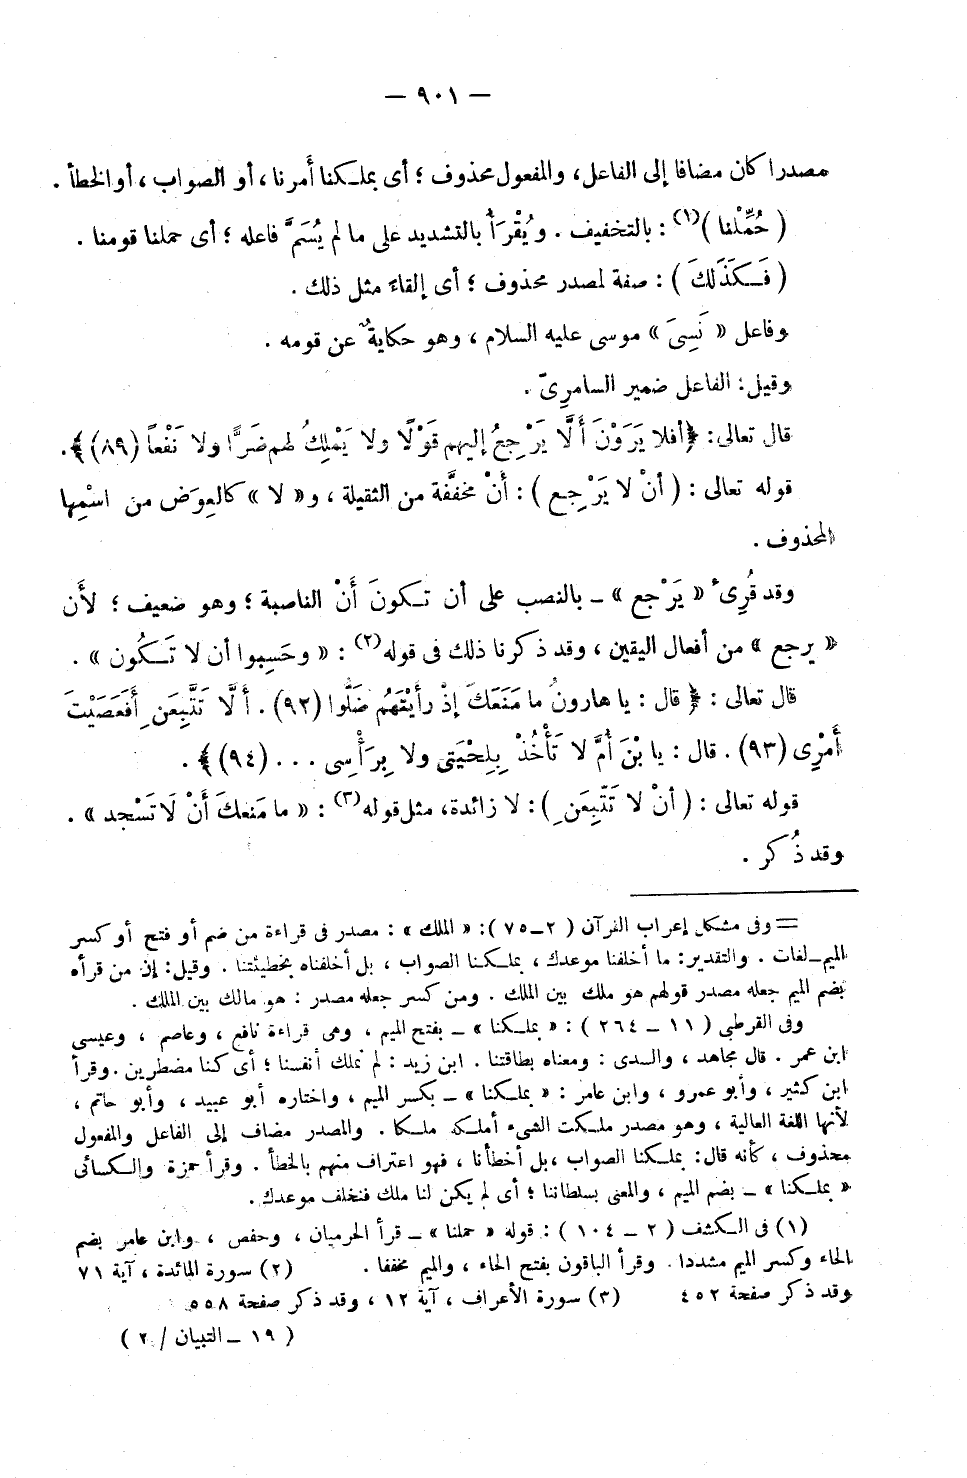 — ٩٠١ —
مصدرا كان مضافا إلى الفاعل، والمفعول محذوف؛ أى بملكنا أَمرنا، أو الصواب، أو الخطأ.
(حُمِّلْنا)(١): بالتخفيف. ويُقْرَأُ بالتشديد على ما لم يُسَمَّ فاعله؛ أى حملنا قومنا.
(فَكَذَلكَ): صفة لمصدر محذوف؛ أى إلقاءً مثل ذلك.
وفاعل «نَسِىَ» موسى عليه السلام، وهو حكايةٌ عن قومه.
وقيل: الفاعل ضمير السامرِىّ.
قال تعالى: ﴿أفلا يَرَوْنَ أَلَّا يَرْجِعُ إليهم قَوْلًا ولا يَمْلِكُ لهم ضَرًّا ولا نَفْعاً (٨٩)﴾.
قوله تعالى: (أنْ لا يَرْجِع): أَنْ مخفَّفة من الثقيلة، و«لا» كالعِوَض من اسْمِها
المحذوف.
وقد قُرِئ «يَرْجع» – بالنصب على أن تكونَ أَنْ الناصبة؛ وهو ضعيف؛ لأَن
«يرجع» من أفعال اليقين، وقد ذكرنا ذلك فى قوله(٢): «وحَسِبوا أن لا تَكُون».
قال تعالى: ﴿قال: يا هارونُ ما مَنَعَكَ إذْ رأيْتَهُم ضَلُّوا (٩٢). أَلَّا تَتَّبِعَنِ أَفَعَصَيْتَ
أَمْرِى (٩٣). قال: يا بْنَ أُمَّ لا تَأْخُذْ بِلِحْيَتى ولا بِرَأْسِى ... (٩٤)﴾.
قوله تعالى: (أنْ لا تَتَّبِعَنِ): لا زائدة، مثل قوله(٣): «ما مَنعكَ أَنْ لَا تَسْجد».
وقد ذُكر.
= وفى مشكل إعراب القرآن (٢–٧٥): «الملك»: مصدر فى قراءة من ضم أو فتح أو كسر
الميم – لغات. والتقدير: ما أخلفنا موعدك، بملكنا الصواب، بل أخلفناه بخطيئتنا. وقيل: إن من قرأه
بضم الميم جعله مصدر قولهم هو ملك بين الملك. ومن كسر جعله مصدر: هو مالك بين الملك.
وفى القرطبى (١١ – ٢٦٤): «بملكنا» – بفتح الميم، وهى قراءة نافع، وعاصم، وعيسى
ابن عمر. قال مجاهد، والسدى: ومعناه بطاقتنا. ابن زيد: لم نملك أنفسنا؛ أى كنا مضطرين. وقرأ
ابن كثير، وأبو عمرو، وابن عامر: «بملكنا» – بكسر الميم، واختاره أبو عبيد، وأبو حاتم،
لأنها اللغة العالية، وهو مصدر ملكت الشىء أملكه ملكا. والمصدر مضاف إلى الفاعل والمفعول
محذوف، كأنه قال: بملكنا الصواب، بل أخطأنا، فهو اعتراف منهم بالخطأ. وقرأ حمزة والكسائى
«بملكنا» – بضم الميم، والمعنى بسلطاننا؛ أى لم يكن لنا ملك فنخلف موعدك.
(١) فى الكشف (٢ – ١٠٤): قوله «حملنا» – قرأ الحرميان، وحفص، وابن عامر بضم
الحاء وكسر الميم مشددا. وقرأ الباقون بفتح الحاء، والميم مخففا. (٢) سورة المائدة، آية ٧١
وقد ذكر صفحة ٤٥٢ (٣) سورة الأعراف، آية ١٢، وقد ذكر صفحة ٥٥٨
(١٩ – التبيان / ٢)